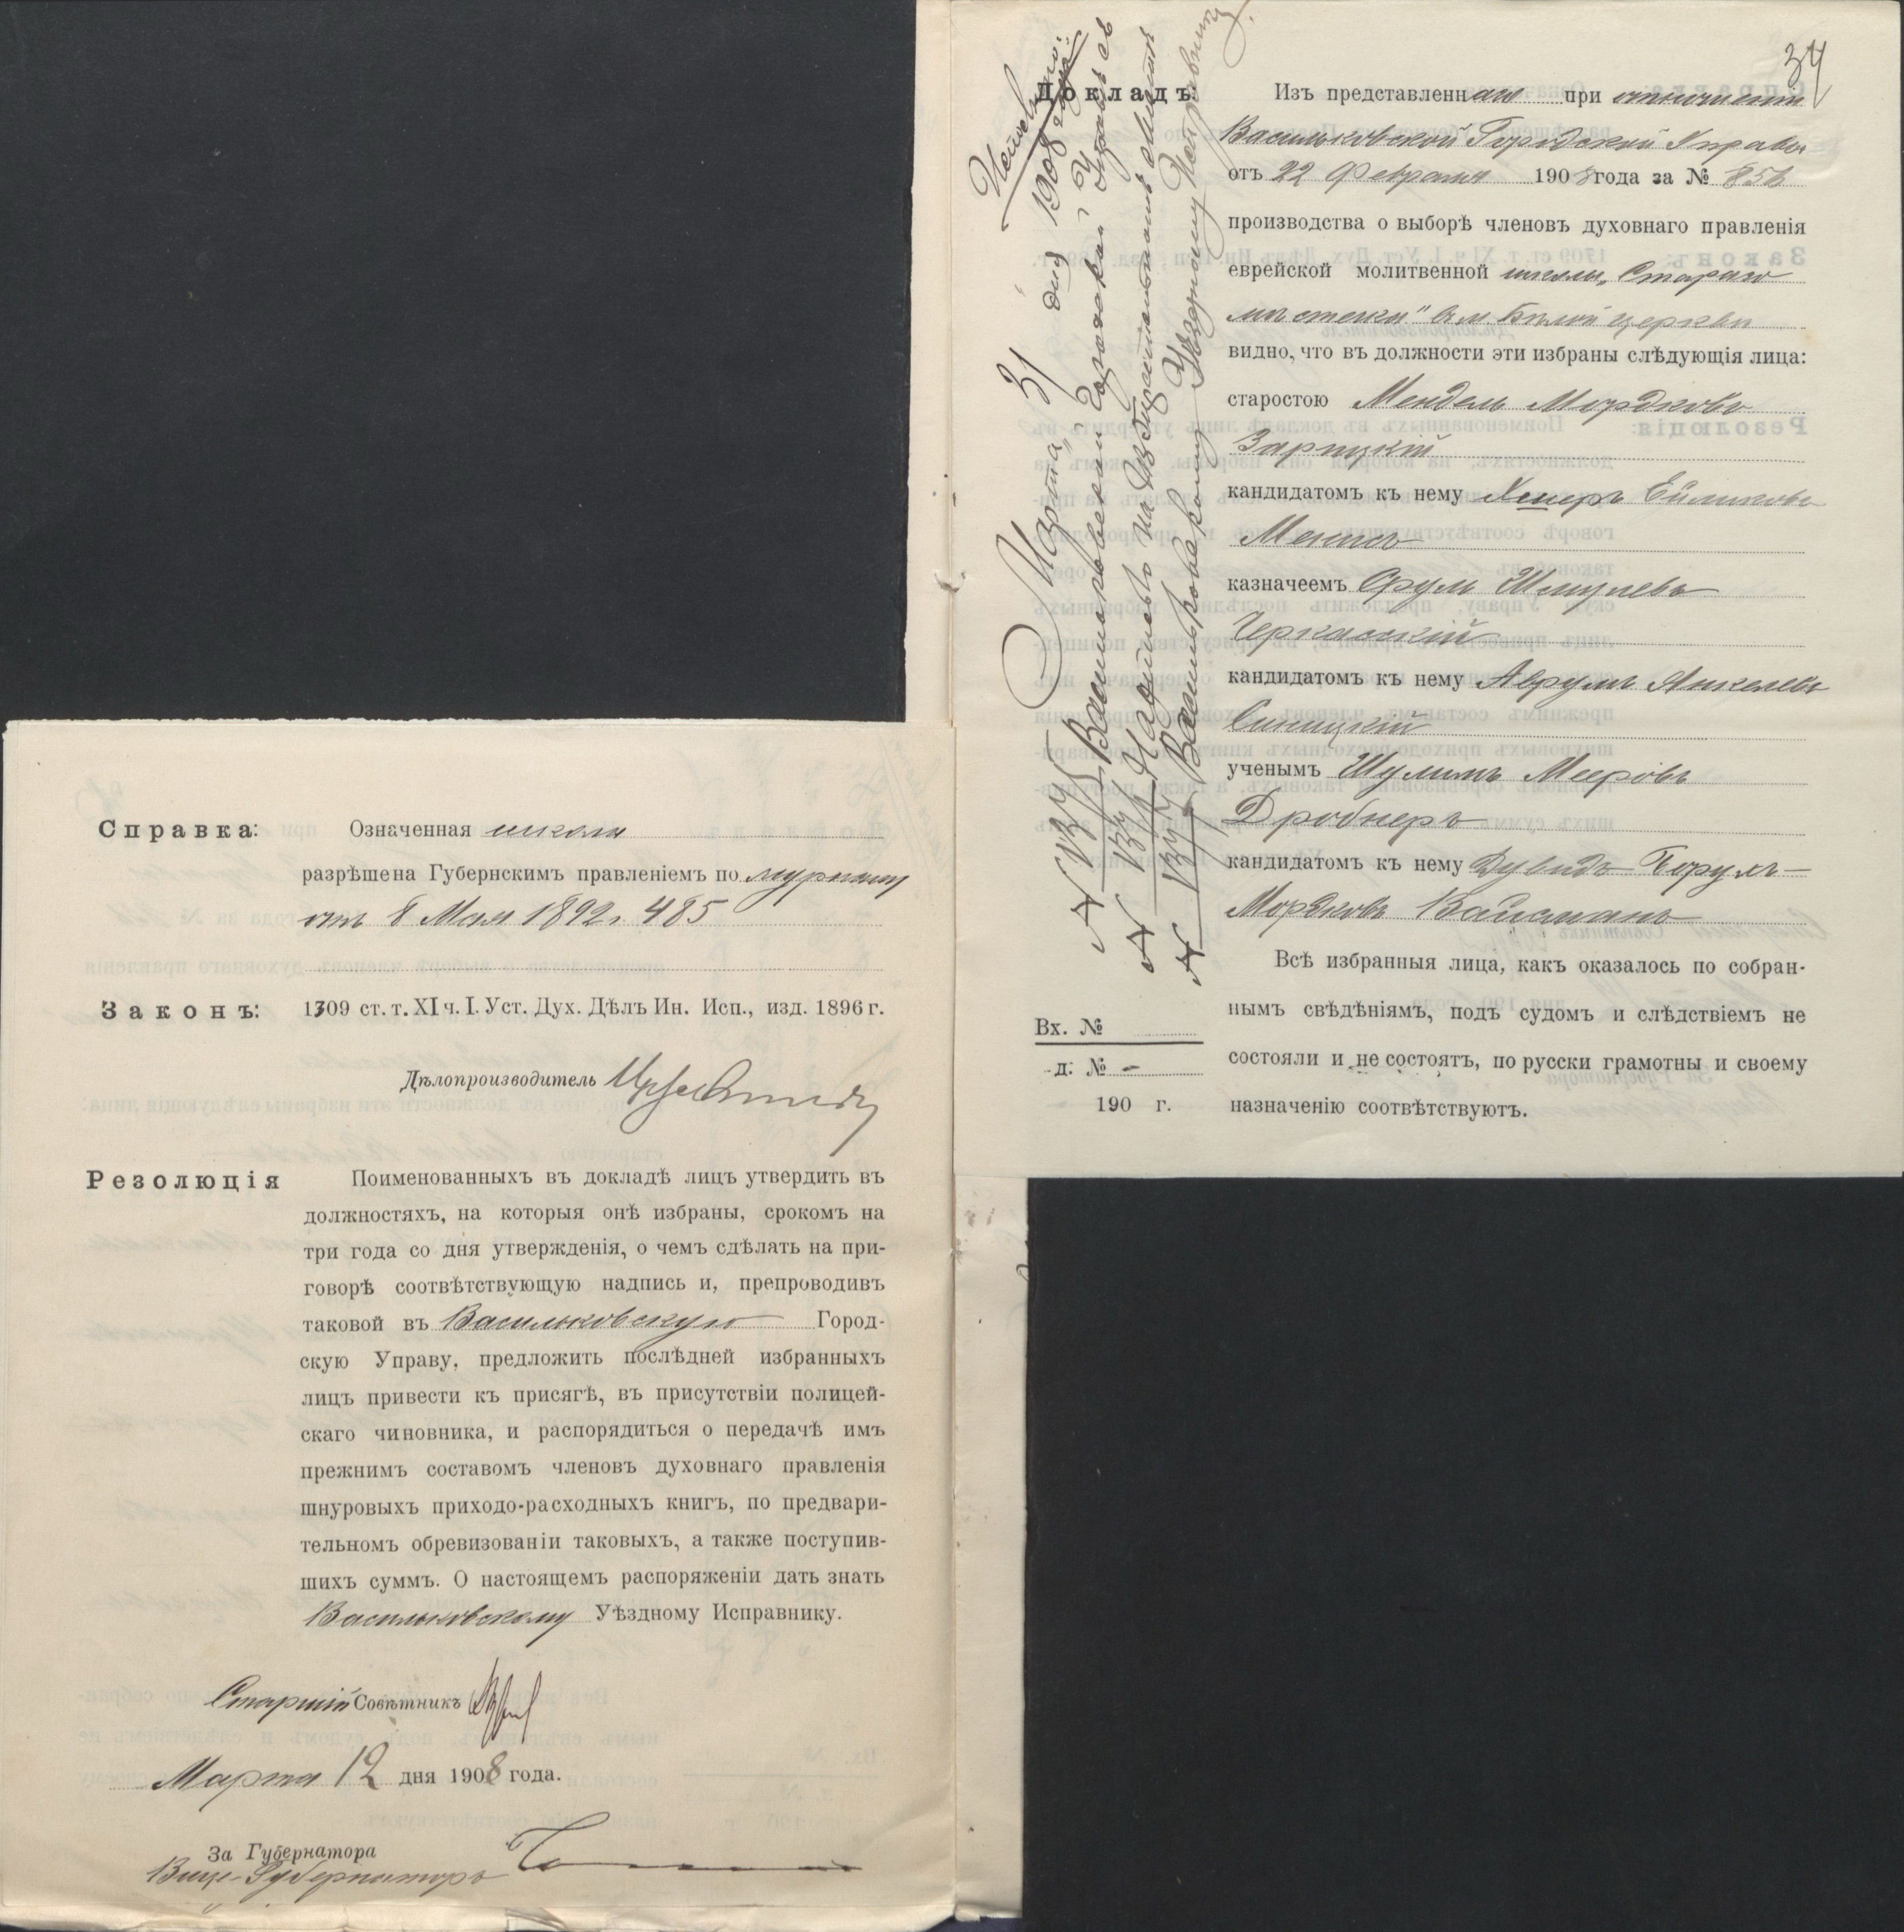 34
Докладъ:
Изъ представленнаго при отношеніи
Васильковской Городской Управы
отъ 22 Февраля 1908 года за № 856
производства о выборѣ членовъ духовнаго правленія
еврейской молитвенной школы „Стараго
мѣстечка" въ м. Бѣлой церкви
видно, что въ должности эти избраны слѣдующія лица:
старостою Мендель Мордковъ
Зарицкій
кандидатомъ къ нему Хемеръ
казначеемъ Срулъ Шмулевъ
Черкасскій
кандидатомъ къ нему Аврумъ Янкелевъ
Синицкій
ученымъ Шулимъ Мееровъ
Дробнеръ
кандидатомъ къ нему Дувидъ Борухъ-
Мордковъ Вайсманъ
Всѣ избранныя лица, какъ оказалось по собран-
нымъ свѣдѣніямъ, подъ судомъ и слѣдствіемъ не
состояли и не состоятъ, по русски грамотны и своему
назначенію соотвѣтствуютъ.
Вх. №
д. № -
190 г.
Исполнено:
Марта „31 дня 1908 года
Васильковской Городской Управѣ съ
Уѣздному Исправнику
Справка:
Означенная школа
разрѣшена Губернскимъ правленіемъ по журналу
отъ 8 Мая 1892 г. 485
Законъ:
1309 ст. т. XI ч. I. Уст. Дух. Дѣлъ Ин. Исп., изд. 1896 г.
Дѣлопроизводитель
Резолюція
Поименованныхъ въ докладѣ лицъ утвердить въ
должностяхъ, на которыя онѣ избраны, срокомъ на
три года со дня утвержденія, о чемъ сдѣлать на при-
говорѣ соотвѣтствующую надпись и, препроводивъ
таковой въ Васильковскую Город-
скую Управу, предложить послѣдней избранныхъ
лицъ привести къ присягѣ, въ присутствіи полицей-
скаго чиновника, и распорядиться о передачѣ имъ
прежнимъ составомъ членовъ духовнаго правленія
шнуровыхъ приходо-расходныхъ книгъ, по предвари-
тельномъ обревизованіи таковыхъ, а также поступив-
шихъ суммъ. О настоящемъ распоряженіи дать знать
Васильковскому Уѣздному Исправнику.
Старшій Совѣтникъ
Марта 12 дня 1908 года.
За Губернатора
Вице-Губернаторъ